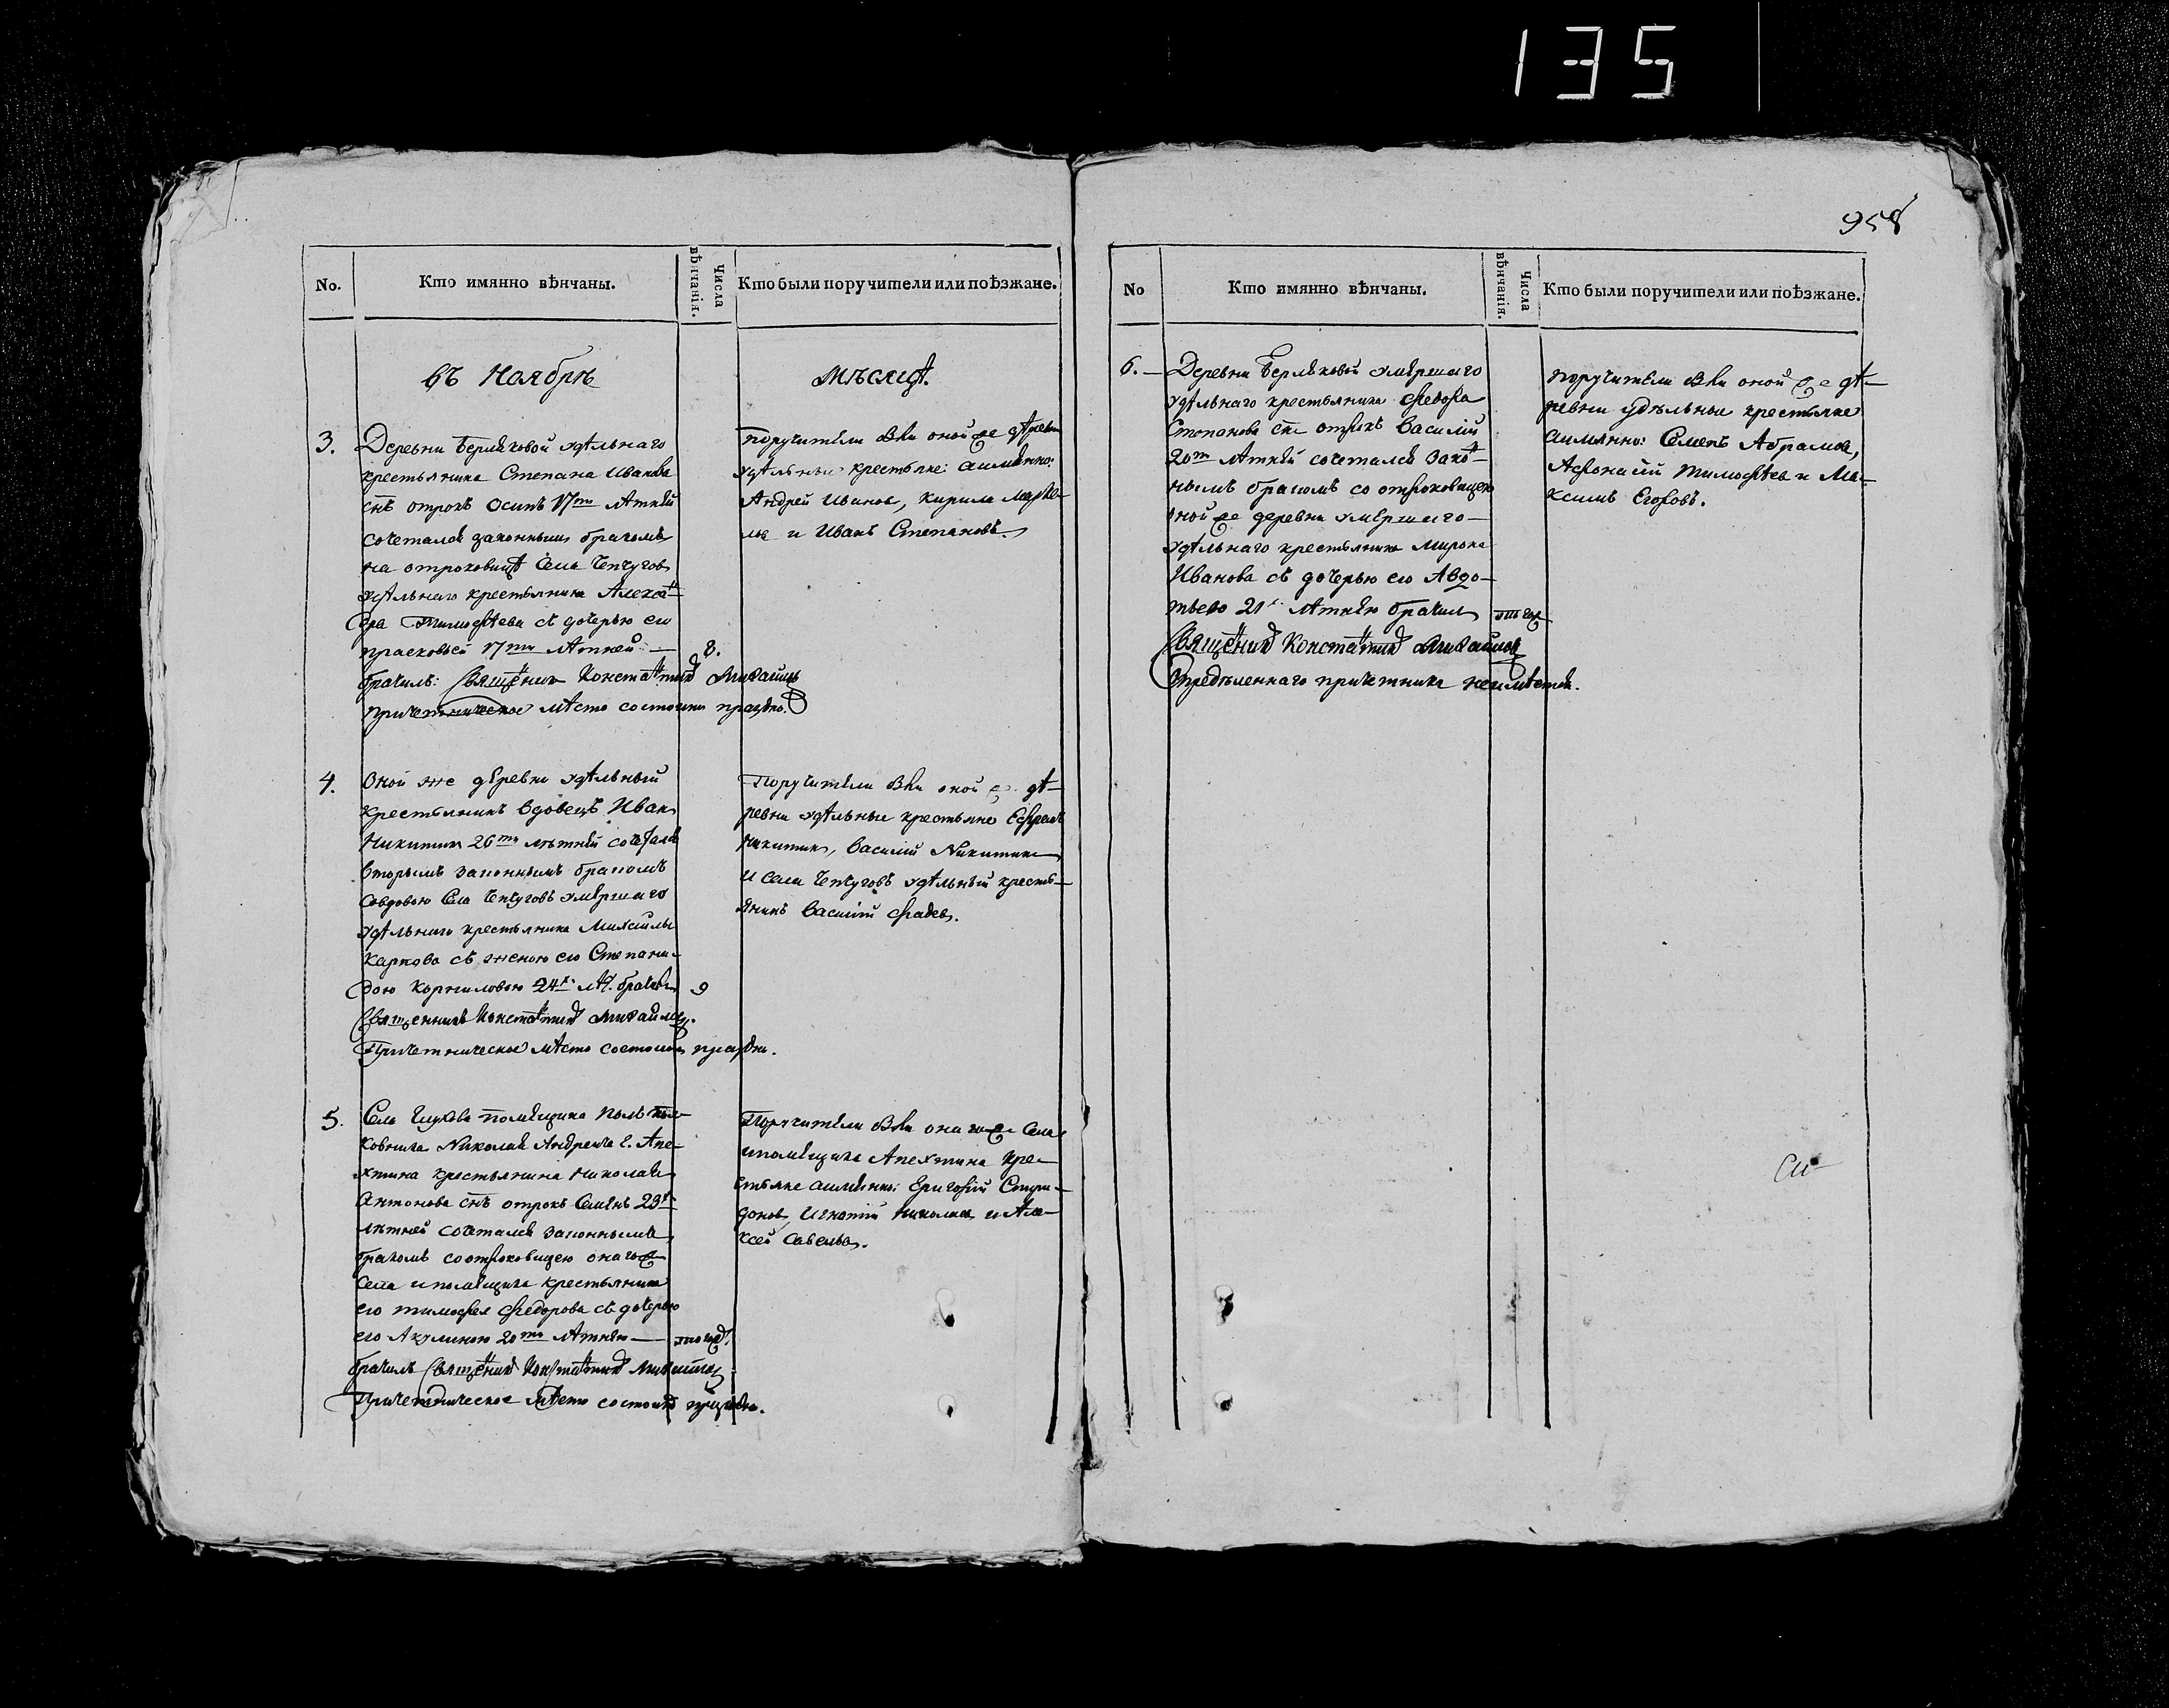 135
958
No.
Кто имянно вѣнчаны.
Числа вѣнчанія.
Кто были поручители или поѣзжане.
въ Ноябрѣ
мѣсяцѣ.
3.
Деревни Берляковой удѣльнаго
крестьянина Степана Иванова
снъ отрокъ Осипъ 17ти лѣтній
сочетался законнымъ бракомъ
на отроковицѣ Села Чепчугов
удѣльнаго крестьянина Алексан
дра Тимофѣева съ дочерью его
Прасковьей 17ти лѣтней —
8.
брачилъ: Священникъ Константинъ Михайловъ
Причетническое мѣсто состоитъ праздно.
Поручители были оной же деревни
удѣльные крестьяне: аимянно:
Андрей Иванов, Кирила
и Иванъ Степановъ.
4.
Оной же деревни удѣльный
крестьянинъ вдовецъ Иван
Никитин 26ти лѣтній сочетался
вторымъ законнымъ бракомъ
совдовою Села Чепчуговъ умершаго
удѣльнаго крестьянина Михайлы
Карпова съ женою его Степани-
дою Корниловою 24х лѣт. брачилъ
9
Священникъ Константинъ Михайлов.
Причетническое мѣсто состоитъ праздно.
Поручители были оной же де-
ревни удѣльные крестьяне Ефремъ
Никитин, Василий Никитин
и села Чепчуговъ удѣльный кресть-
янинъ Василій Фадев.
5.
Села Глухова помѣщика
ковника Николая Андреича г. Апе-
хтина крестьянина Николая
Антонова снъ отрокъ Семенъ 23х
лѣтней сочетался законнымъ
бракомъ соотроковицею онаго же
села и помѣщика крестьянина
его Тимофея Федорова съ дочерью
его Акулиною 20ти лѣтнею —
того ж.
брачилъ Священникъ Константинъ Михайлов
Причетническое мѣсто состоитъ праздно.
Поручители были онаго же Села
и помѣщика Апехтина кре-
стьяне аимянно: Григорій Спири-
донов, Игнатій Николаев и Але-
ксей Савельев.
No
Кто имянно вѣнчаны.
Числа вѣнчанія.
Кто были поручители или поѣзжане.
6.
Деревни Берляковой умершаго
удѣльнаго крестьянина Федора
Степанова снъ отрокъ Василій
20ти лѣтній сочетался закон-
нымъ бракомъ со отроковицею
оной же деревни умершаго —
удѣльнаго крестьянина Мирона
Иванова съ дочерью его Авдо-
тьею 21г. лѣтнею брачил
того ж
Священникъ Константинъ Михайлов
Опредѣленнаго причетника неимѣется.
поручители были оной же де-
ревни удѣльные крестьяне
аимянно: Семенъ Абрамов,
Афонасій Тимофѣев и Ма-
ксимъ Егоровъ.